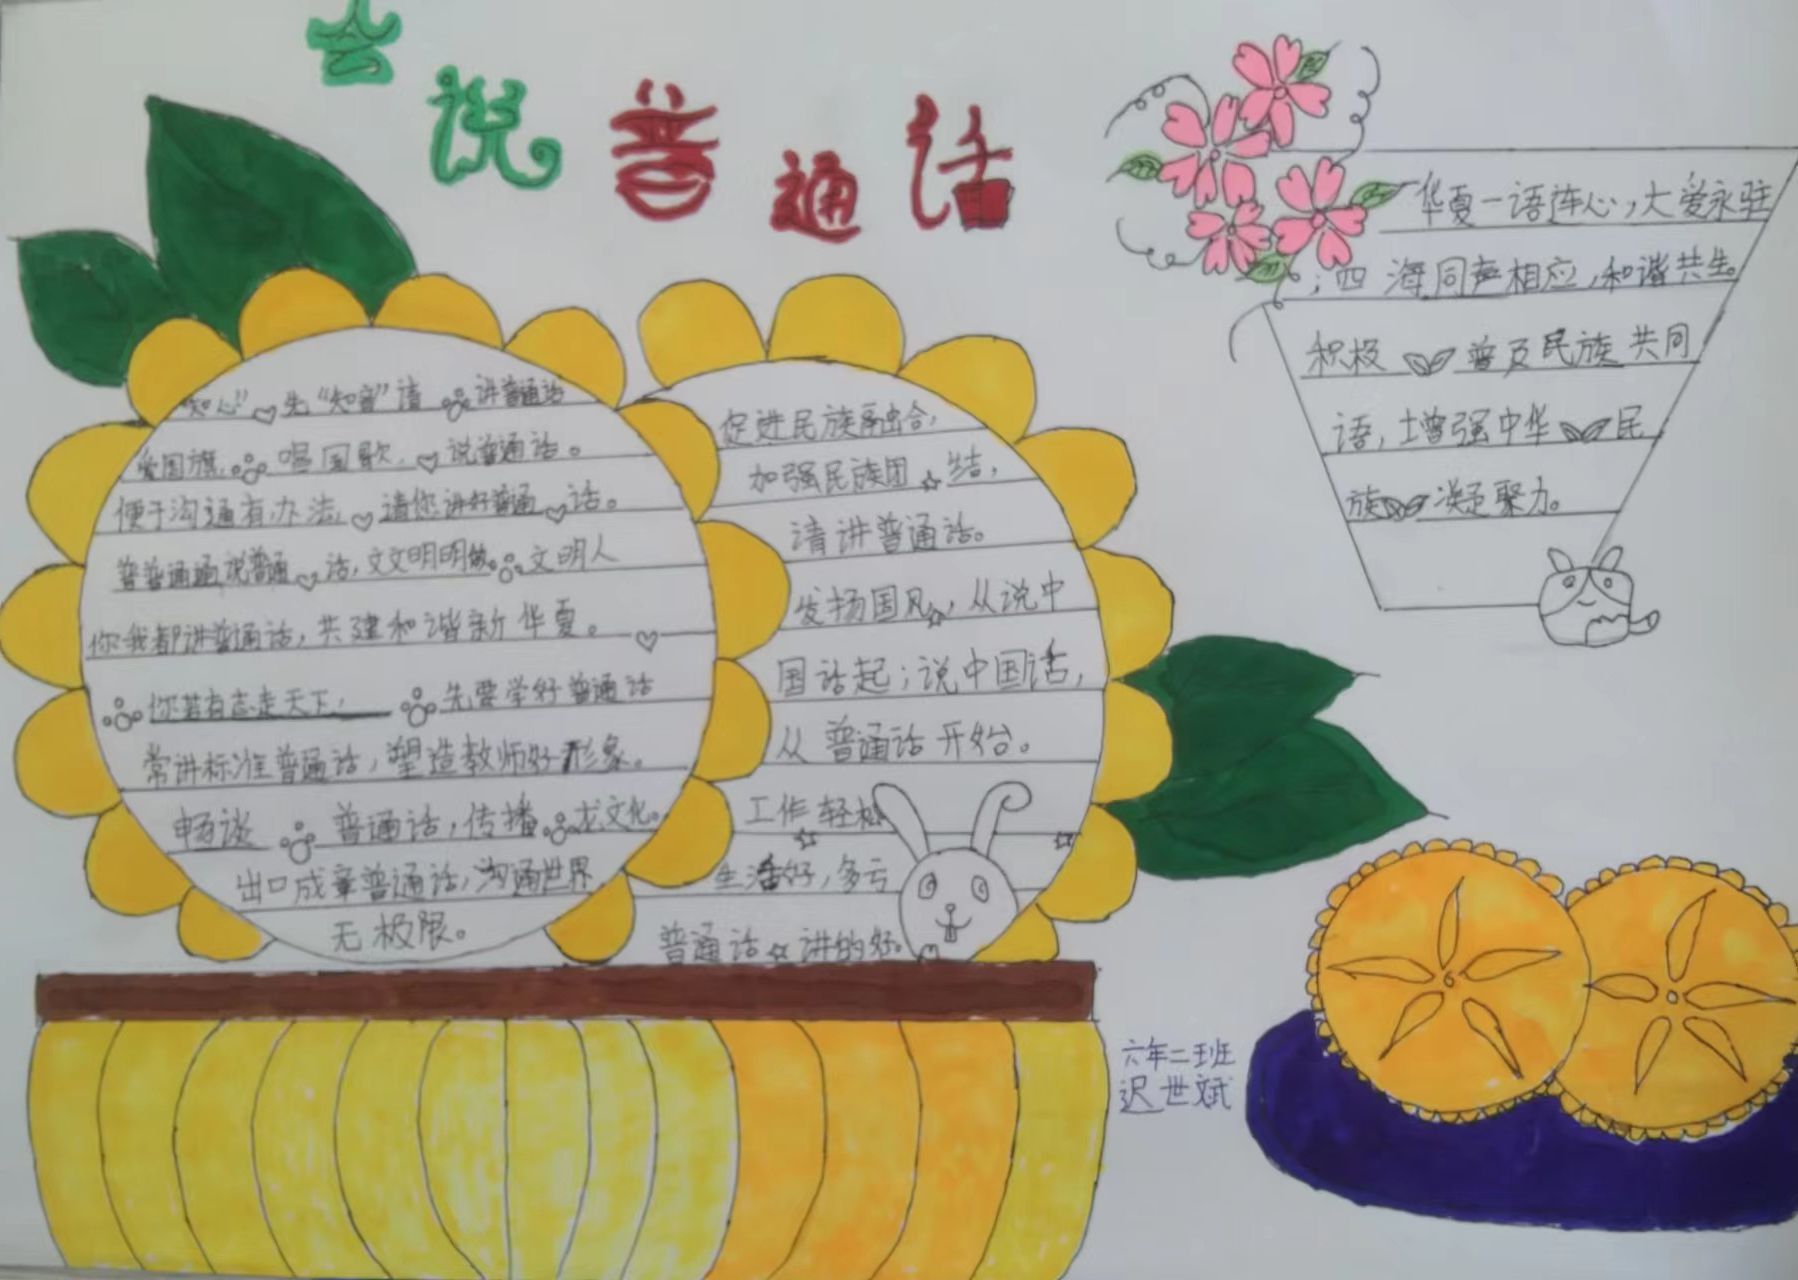 会说普通话
"知心"先"知音"请讲普通话
爱国旗,唱国歌,说普通话。
便于沟通有办法,请你讲好普通话。
普普通通说普通话,文文明明做文明人
你我都讲普通话,共建和谐新华夏。
你若有志走天下,先要学好普通话
常讲标准普通话,塑造教师好形象。
畅谈普通话,传播龙文化。
出口成章普通话,沟通世界
无极限。
促进民族融合,
加强民族团结,
请讲普通话。
发扬国风,从说中
国话起;说中国话,
从普通话开始。
工作轻松
生活好,多亏
普通话讲的好。
华夏一语连心,大爱永驻
;四海同声相应,和谐共生。
积极普及民族共同
语,增强中华民
族凝聚力。
六年二班
迟世斌